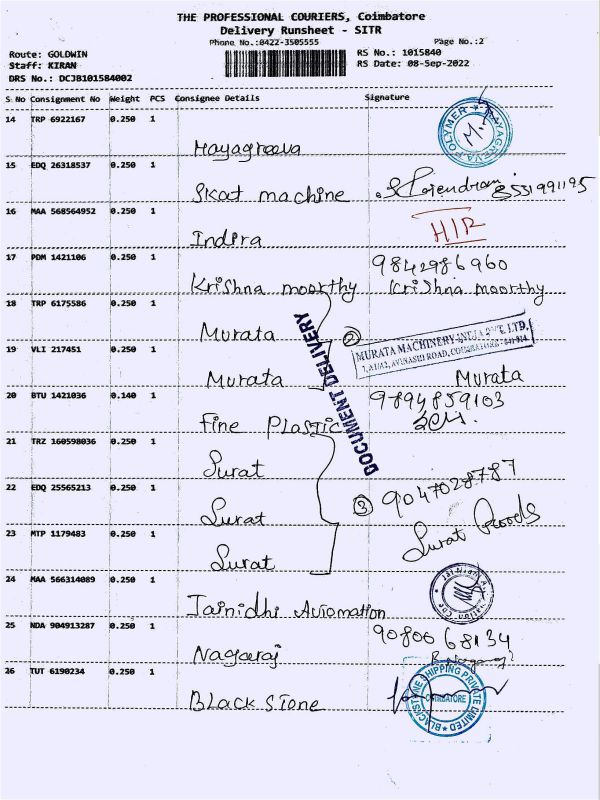 THE PROFESSIONAL COURIERS, Coimbatore
Delivery Runsheet - SITR
Phone No.:0422-3505555 Page No.:2
Route: GOLDWIN RS No.: 1015840
Staff: KIRAN RS Date: 08-Sep-2022
DRS No.: DCJB101584002
S No Consignment No Weight PCS Consignee Details Signature
14 TRP 6922167 0.250 1
Hayagreeva
HAYAGREEVA POLYMER
15 EDQ 26318537 0.250 1
Skat machine 8531991195
16 MAA 568564952 0.250 1
Indira
17 PDM 1421106 0.250 1
Krishna moorthy 9842986960
Krishna moorthy
18 TRP 6175586 0.250 1
Murata
DOCUMENT DELIVERY
②
MURATA MACHINERY INDIA PVT. LTD.
AVINASHI ROAD, COIMBATORE
19 VLI 217451 0.250 1
Murata Murata
20 BTU 1421036 0.140 1
Fine Plastic 9894859103
21 TRZ 160598036 0.250 1
Surat
22 EDQ 25565213 0.250 1
Surat ③ 9047028787
Surat Goods
23 MTP 1179483 0.250 1
Surat
24 MAA 566314089 0.250 1
Jainidhi Automation
25 NDA 904913287 0.250 1
Nagaraj 9080068134
26 TUT 6190234 0.250 1
Black stone
BLACKSTONE SHIPPING PRIVATE LIMITED
COIMBATORE